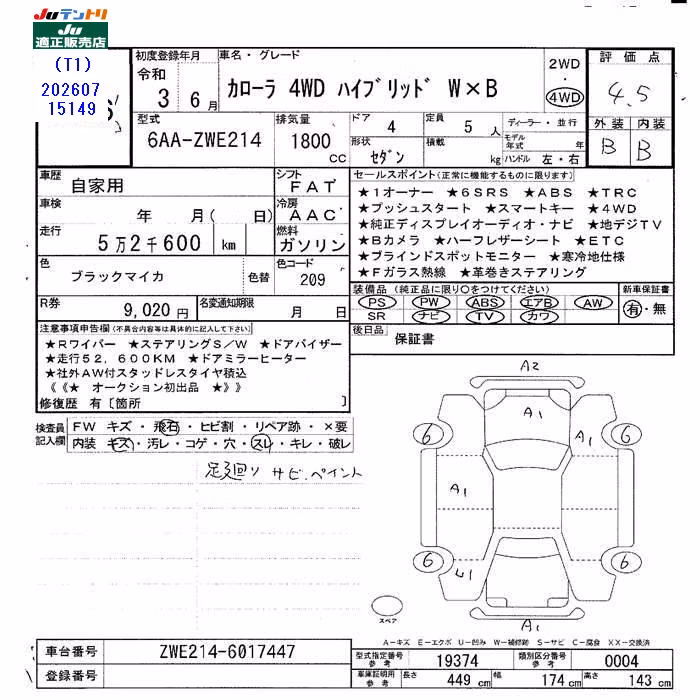 Juテントリ
Ju
適正販売店
(T1)
202607
15149
初度登録年月
令和
3 6月
車名・グレード
カローラ 4WD ハイブリッド W×B
2WD
・
4WD
評価点
4.5
外装 内装
B B
型式
6AA-ZWE214
排気量
1800
cc
ドア 4
定員 5 人
形状 セダン
積載 kg
ディーラー・並行
モデル年式 年
ハンドル 左・右
車歴 自家用
シフト FAT
車検 年 月( 日)
冷房 AAC
走行 5万2千600 km
燃料 ガソリン
色 ブラックマイカ 色替
色コード 209
R券 9,020円
名変通知期限 月 日
セールスポイント(正常に機能するものに限ります)
★1オーナー ★6SRS ★ABS ★TRC
★プッシュスタート ★スマートキー ★4WD
★純正ディスプレイオーディオ・ナビ ★地デジTV
★Bカメラ ★ハーフレザーシート ★ETC
★ブラインドスポットモニター ★寒冷地仕様
★Fガラス熱線 ★革巻きステアリング
装備品(純正品に限り○をつけてください)
新車保証書
PS PW ABS エアB AW
SR ナビ TV カワ
有・無
後日品 保証書
注意事項申告欄(不具合内容等は具体的に記入して下さい)
★Rワイパー ★ステアリングS/W ★ドアバイザー
★走行52,600KM ★ドアミラーヒーター
★社外AW付スタッドレスタイヤ積込
《《★ オークション初出品 ★》》
修復歴 有〔箇所 〕
検査員記入欄
FW キズ・飛石・ヒビ割・リペア跡・×要
内装 キズ・汚レ・コゲ・穴・スレ・キレ・破レ
足廻り サビ.ペイント
A2
A1
A1
6
6
A1
A1
6
6
A1
スペア
A-キズ E-エクボ U-凹み W-補修跡 S-サビ C-腐食 XX-交換済
車台番号 ZWE214-6017447
登録番号
型式指定番号参考 19374
類別区分番号参考 0004
車庫証明用参考 長さ 449cm 幅 174cm 高さ 143cm